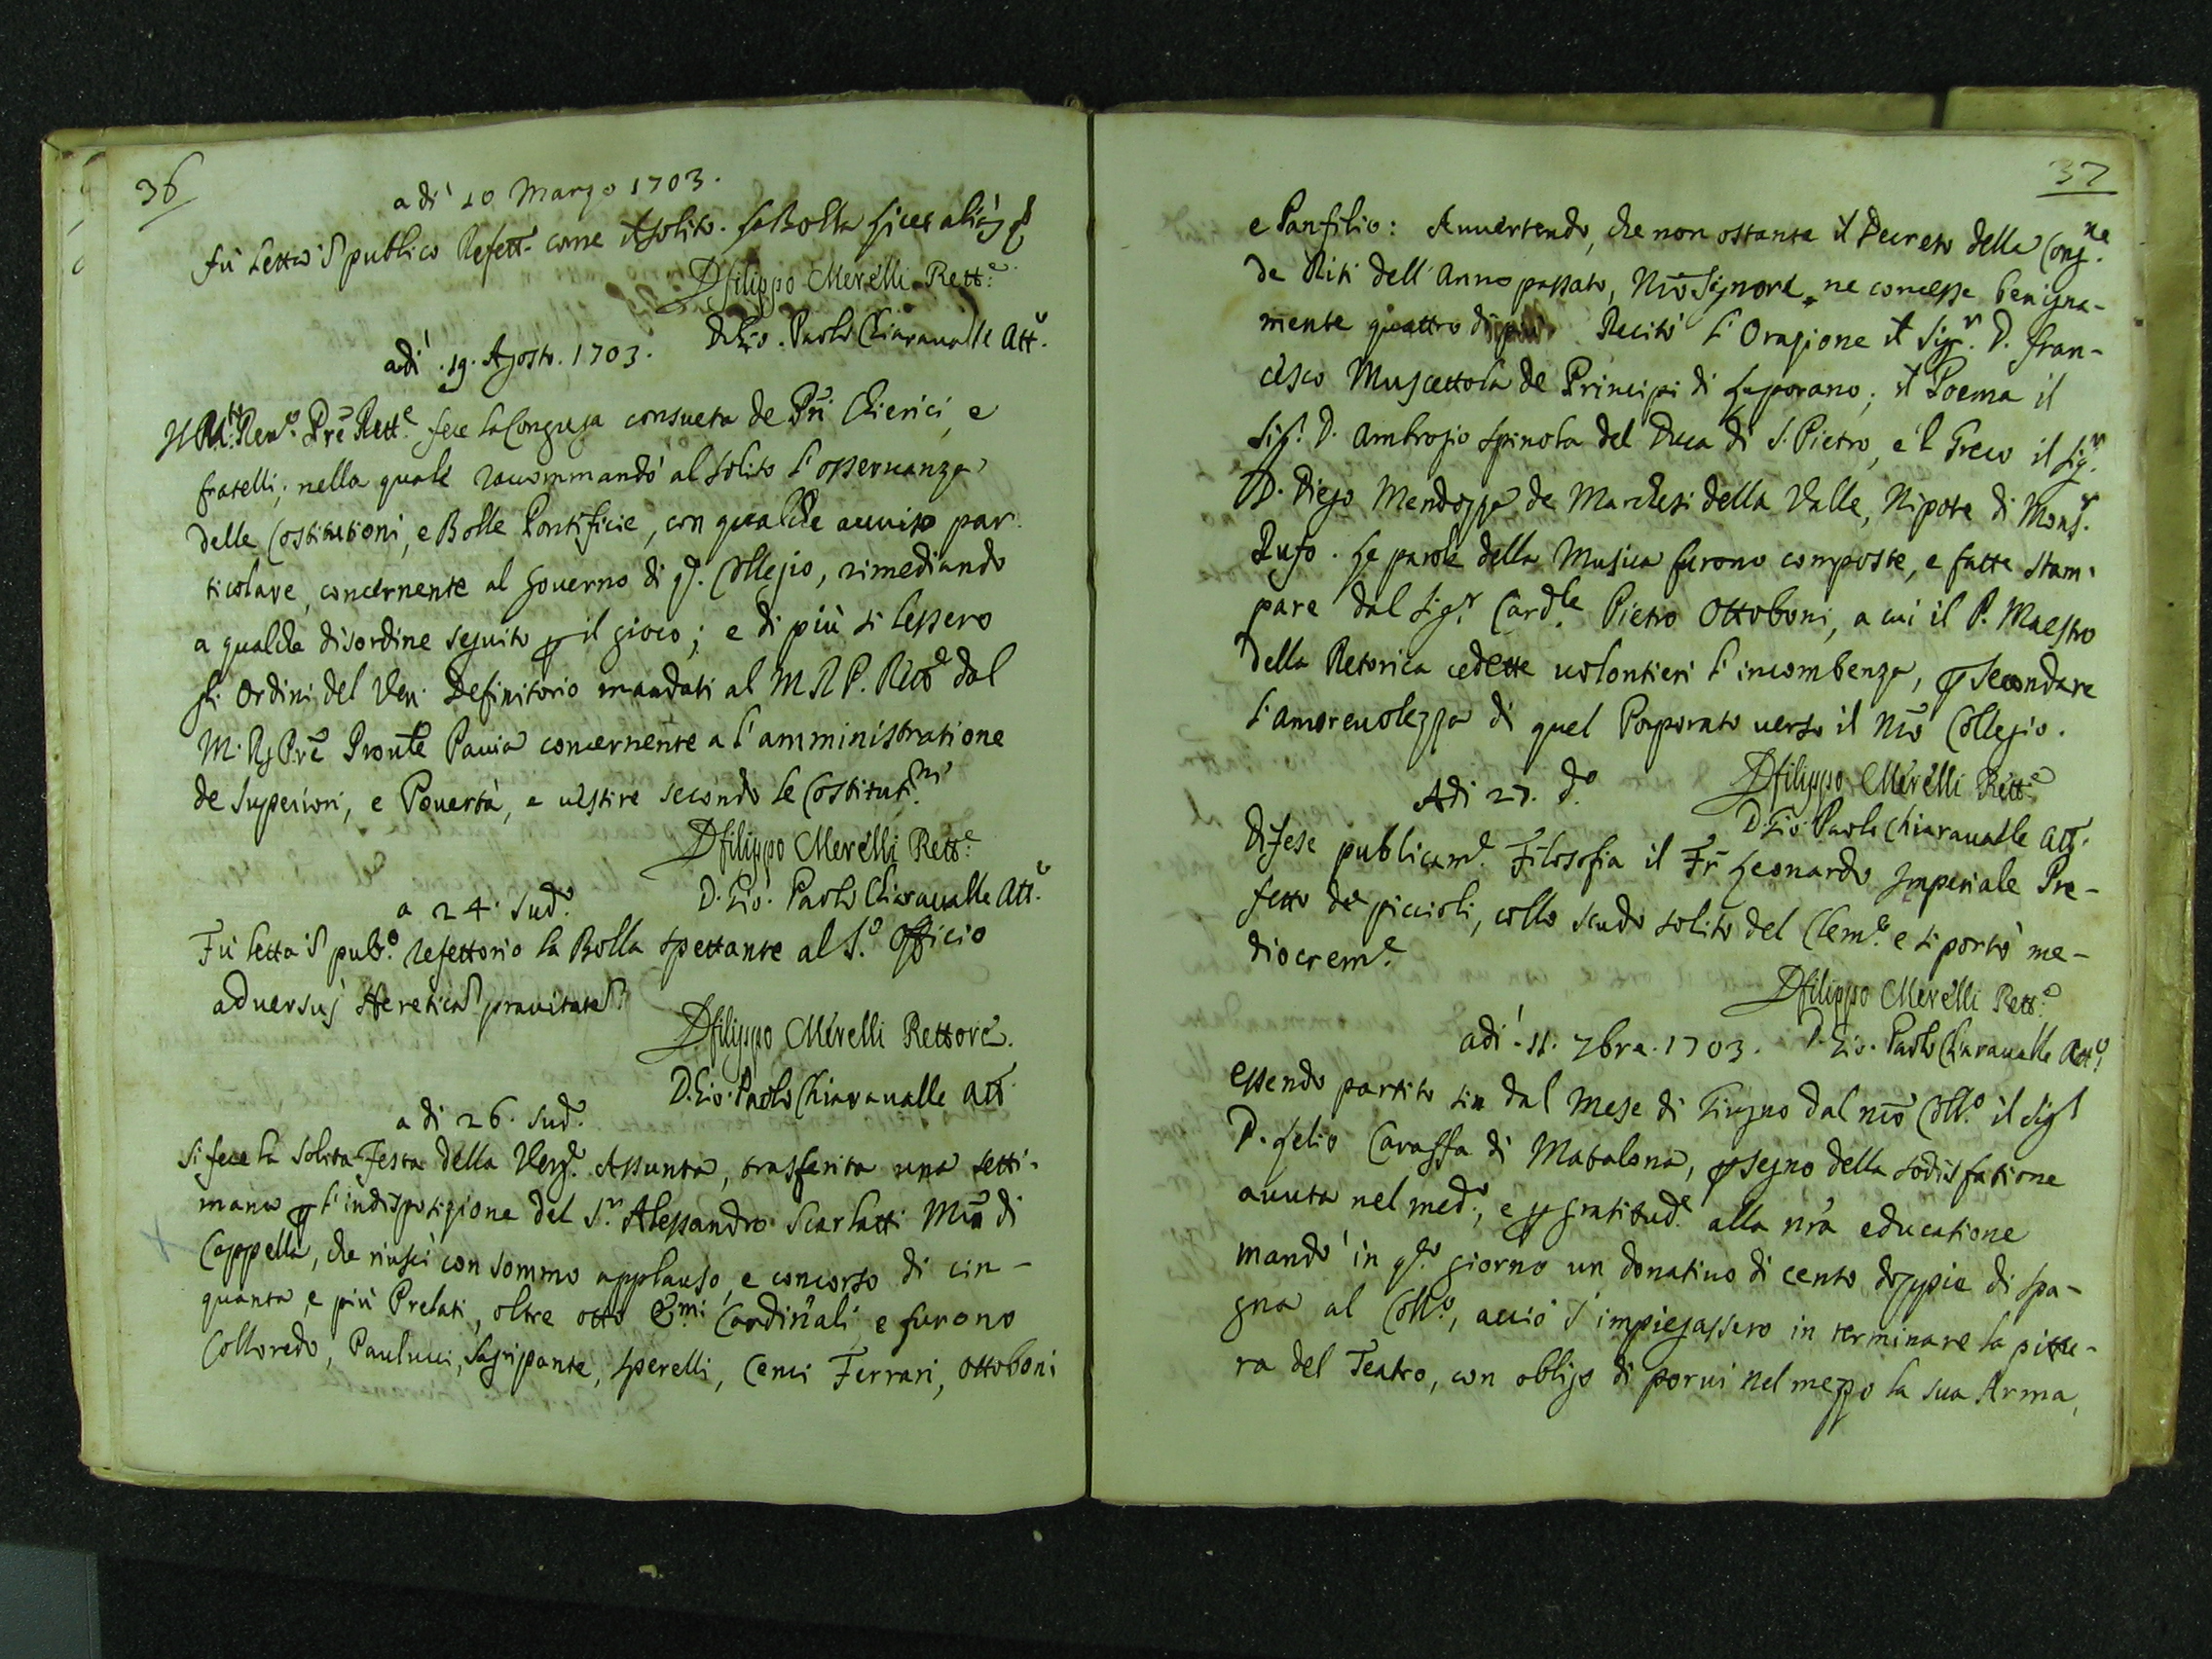 36
a di 10 Marzo 1703.
Fù letta i publico Refett.o come il solito. la Bolla licet aliàs &
D filippo Merelli Rett.e
D. Gio. Paolo Chiaravalle Att.o
adi .19. Agosto. 1703.
Il M.to Reu.o Prē Rett.e fece la Congrega consueta de Pri Chierici, e
fratelli; nella quale racommandò al solito l'osseruanza
delle Costitutioni, e Bolle Pontificie, con qualche auuiso par-
ticolare, concernente al gouerno di q.o Collegio, rimediando
a qualche disordine seguito p il gioco; e di più si lessero
gli Ordini del Ven. Definitorio mandati al M R P. Rett.e dal
M. R. Prē Prouāle Pauia concernente a l'amministratione
de Superiori, e Pouertà, e uestire secondo le Costitut.ni
D filippo Merelli Rett.e
D. Gio. Paolo Chiaravalle Att.o
a 24. sud.o
Fù letta i pub.o refettorio la Bolla spettante al S.o Officio
aduersus Heretica prauitate
D filippo Merelli Rettore.
D. Gio. Paolo Chiaravalle Att.o
a di 26. sud.o
Si fece la solita Festa della Verg.e Assunta, trasferita una setti-
mana p l'indisposizione del S.r Alessandro Scarlatti Mro di
Cappella, che riuscì con sommo applauso, e concorso di cin-
quanta, e più Prelati, oltre otto E.mi Cardinali e furono
Colloredo, Paulucci, Sagripante, Sperelli, Cenci Ferrari, Ottoboni
37
e Panfilio: Auuertendo, che non ostante il Decreto della Cong.ne
de Riti dell'Anno passato, Nrō Signore ne concesse benigna-
mente quattro di più. Recitò l'Orazione il Sig.r D. Fran-
cesco Muscettola de Principi di Leporano; il Poema il
Sig.r D. Ambrogio Spinola del Duca di S. Pietro, e'l Greco il Sig.r
D. Diego Mendozza de Marchesi della Valle, Nipote di Mons.r
Rufo. Le parole della Musica furono composte, e fatte stam-
pare dal Sig.r Card.le Pietro Ottoboni, a cui il P. Maestro
della Retorica cedette uolontieri l'incombenza, p secondare
l'amoreuolezza di quel Porporato uerso il Nrō Collegio.
D filippo Merelli Rett.e
Adi 27. d.o
D. Gio. Paolo Chiaravalle Att.o
Difese publicam.e Filosofia il Fr Leonardo Imperiale Pre-
fetto de piccioli, collo scudo solito del Clem.o e si portò me-
diocrem.e
D filippo Merelli Rett.e
adi .11. 7bre. 1703.
D. Gio. Paolo Chiaravalle Att.o
Essendo partito sin dal Mese di Giugno dal nrō Coll.o il Sig.r
D. Lelio Caraffa di Matalona, p segno della sodisfatione
auuta nel med.o, e p gratitud.e alla nrā educatione
mandò in q.sto giorno un donatiuo di cento doppie di Spa-
gna al Coll.o, acciò s'impiegassero in terminare la pittu-
ra del Teatro, con obligo di porui nel mezzo la sua Arma,